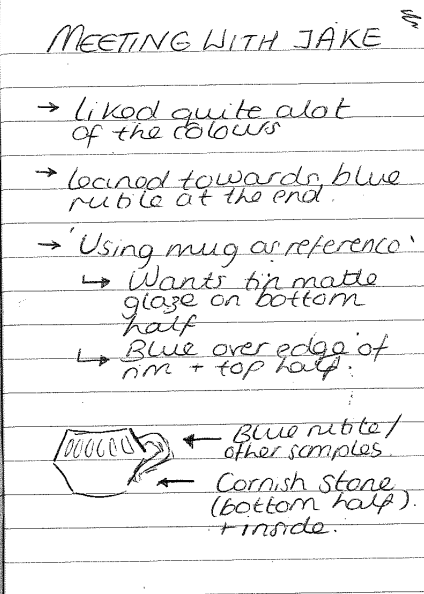 MEETING WITH JAKE
→ liked quite alot
of the colours
→ leaned towards blue
rutile at the end.
→ 'Using mug as reference'
↳ Wants tin matte
glaze on bottom
half
↳ Blue over edge of
rim + top half.
← Blue rutile /
other samples.
← Cornish Stone
(bottom half).
+ inside.